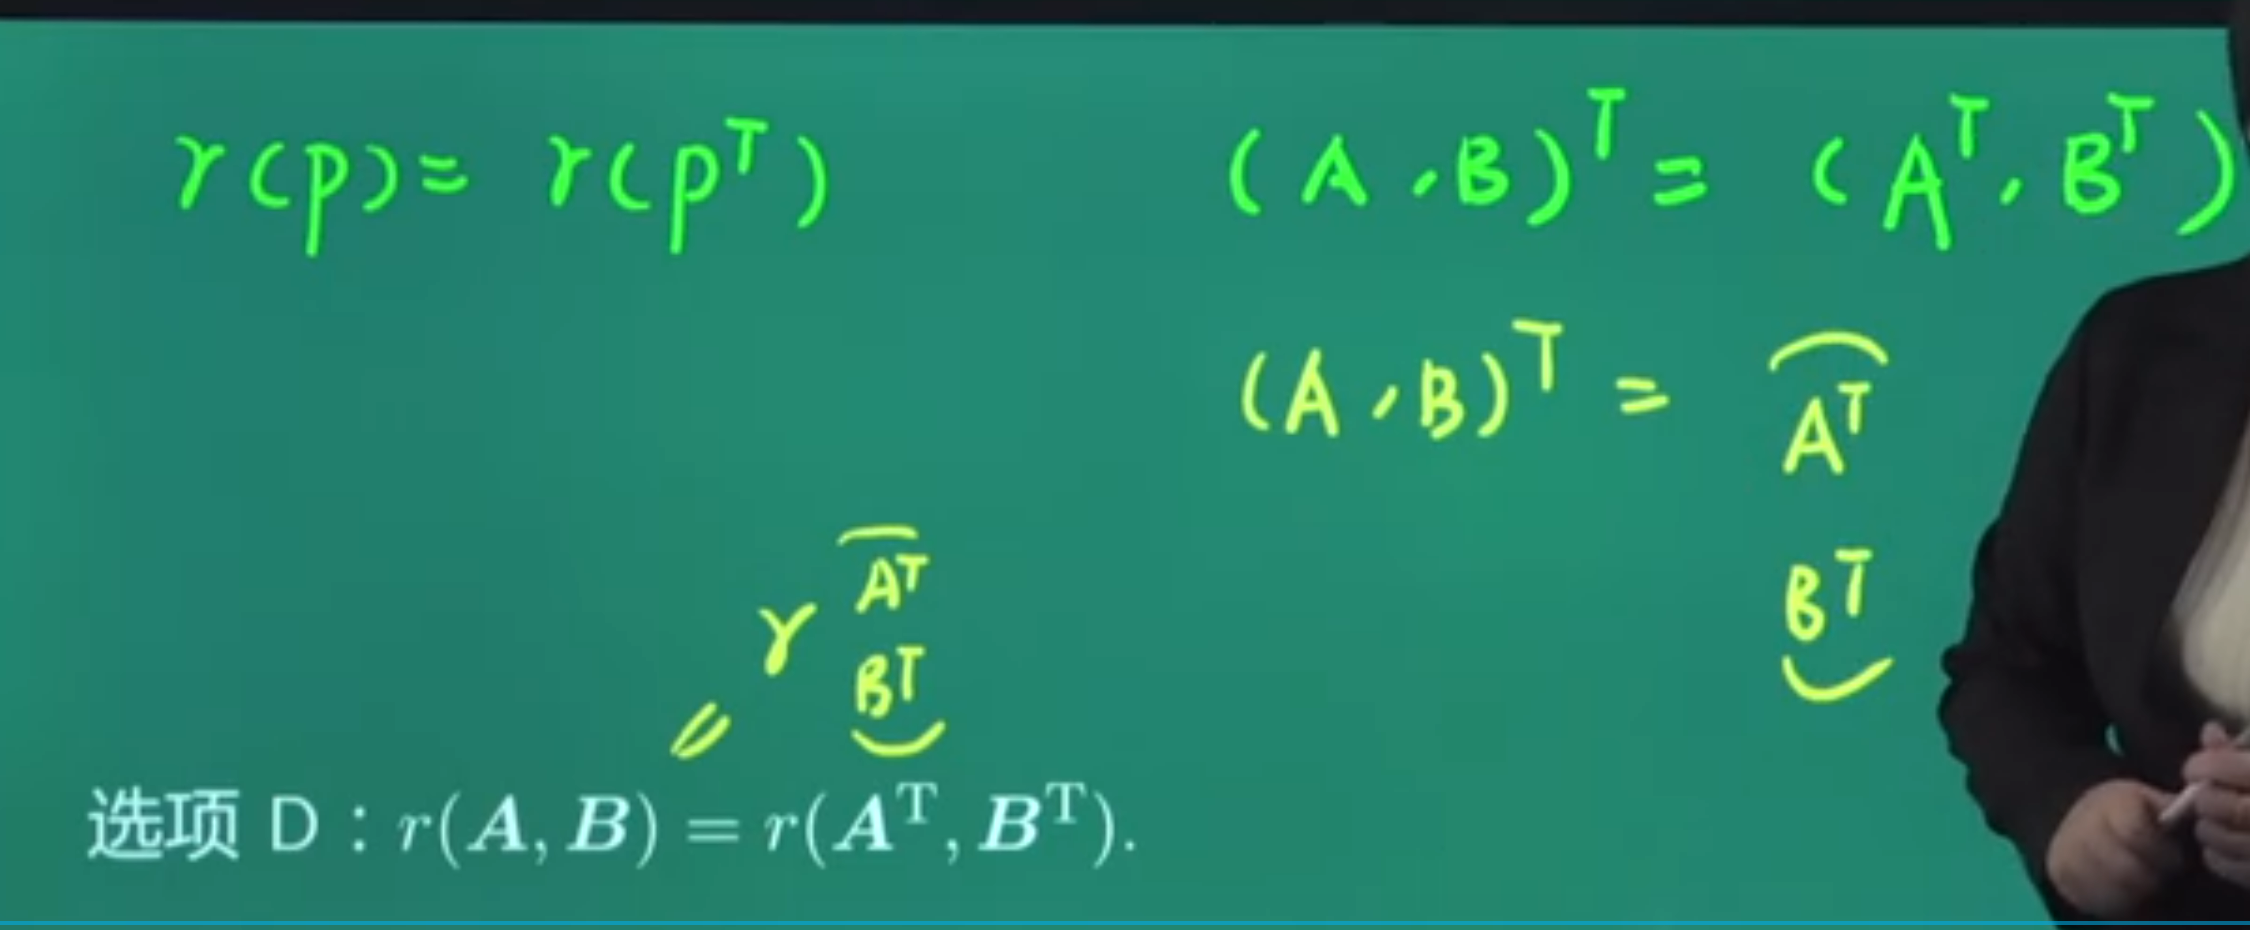 r(p)= r(pᵀ)
(A,B)ᵀ = (Aᵀ,Bᵀ)
(A,B)ᵀ = (Aᵀ
Bᵀ)
= r (Aᵀ
Bᵀ)
选项 D：r(A, B) = r(Aᵀ, Bᵀ).